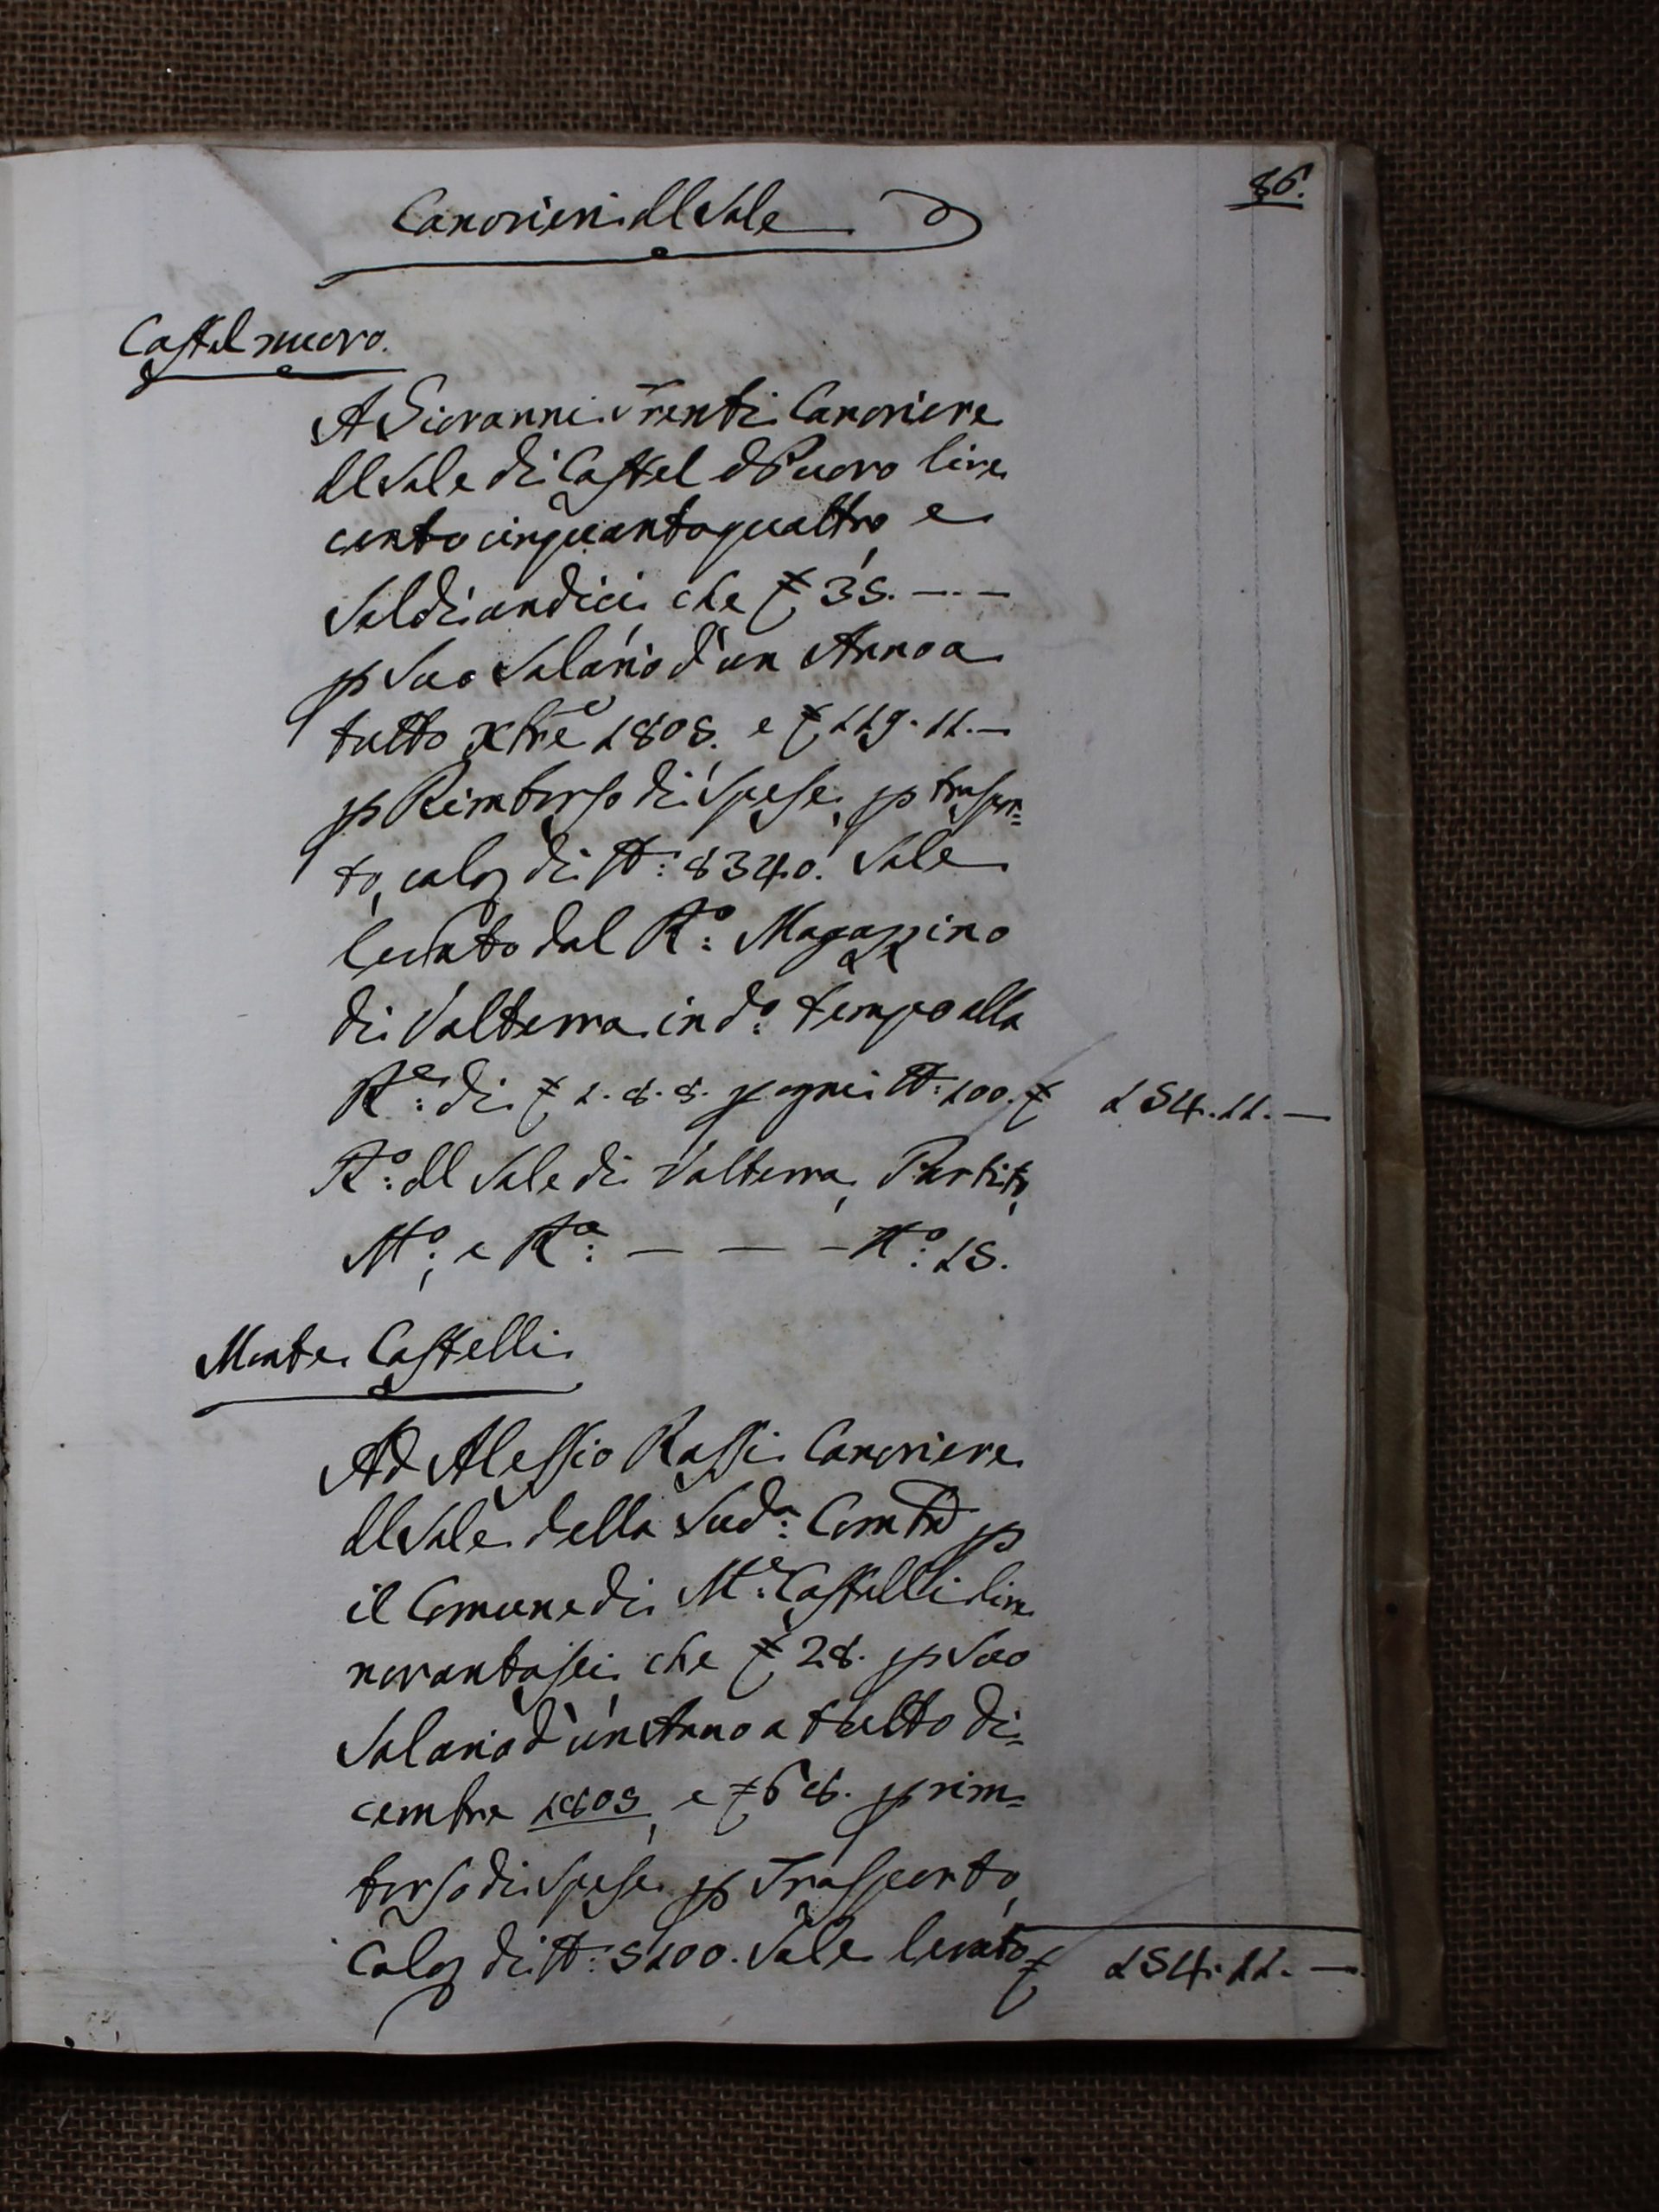 86.
Canovieri dl Sale
Castel nuovo.
A Giovanni Trenti Canoviere
dl Sale di Castel Nuovo lire
cento cinquantaquattro, e
Soldi undici, che £ 35. — . —
p Suo Salario d'un Anno a
tutto Xbre 1805. e £ 119. 11. —
p Rimborso di Spese, p traspor=
to, calo di lb: 8340. Sale
levato dal R.º: Magazzino
di Volterra in d.º: tempo alla
R.e: di £ 1. 8. 8. p ogni lb: 100. £ 154. 11. —
R.º: dl Sale di Volterra, Partito,
M.º:, e R.a: — — — N.º: 15.
Monte Castelli
Ad Alessio Rossi Canoviere
dl Sale della Sud.a: Comtà p
il Comune di M.e: Castelli lire
novantasei, che £ 28. p Suo
Salario d'un Anno a tutto Di=
cembre 1805, e £ 68. p rim=
borso di Spese p Trasporto,
Calo di lb: 5100. Sale levato, £ 154. 11. —